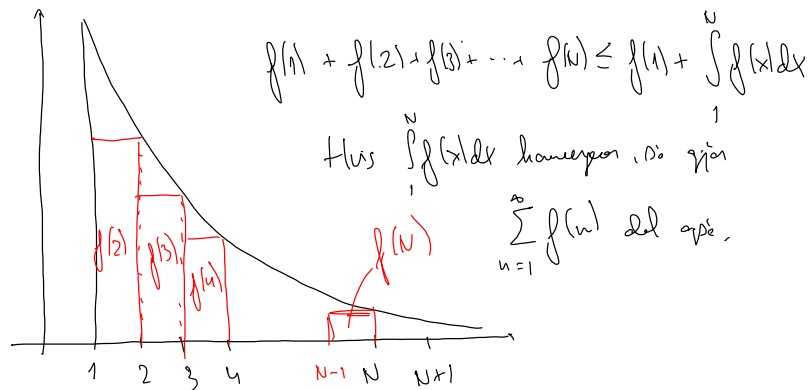 f(1) + f(2) + f(3) + ... + f(N) ≤ f(1) + ∫₁ᴺ f(x)dx
Hvis ∫₁ᴺ f(x)dx konvergerer, så gjør
∑_{n=1}^∞ f(n) det også.
f(2) f(3) f(4) f(N)
1 2 3 4 N-1 N N+1